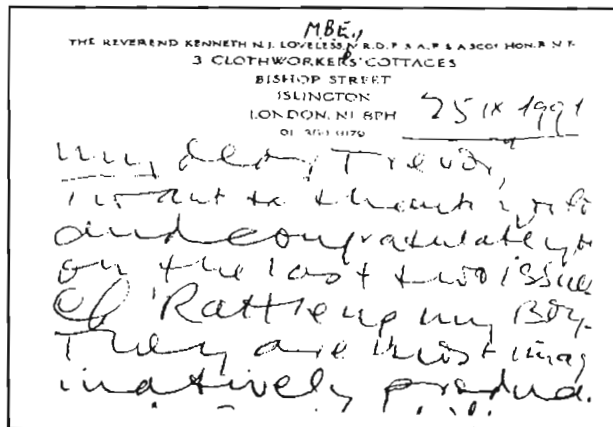 MBE,
THE REVEREND KENNETH N.J. LOVELESS, V.R.D. F.S.A. F.S.A.SCOT HON. R.N.R.
3 CLOTHWORKERS' COTTAGES
BISHOP STREET
ISLINGTON
LONDON, N1 8PH
25 IX 1991
My dear Trevor,
I want to thank you
and congratulate you
on the last two issues
of Rattle up my Boy.
They are most imag
inatively produced.